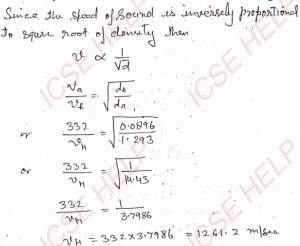 Since the speed of sound is inversely proportional
to square root of density then
v ∝ 1/√d
Va/VH = √(dH/da)
or 332/VH = √(0.0896/1.293)
or 332/VH = √(1/14.43)
332/VH = 1/3.7986
VH = 332×3.7986 = 1261.2 m/sec
ICSE HELP
ICSE HELP
ICSE HELP
ICSE HELP
ICSE HELP